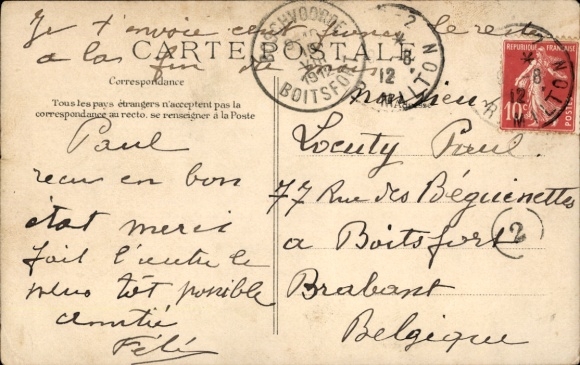 Je t'envoie cent francs le reste
a la fin du mois
CARTE POSTALE
Correspondance
Tous les pays étrangers n'acceptent pas la
correspondance au recto. se renseigner à la Poste
Paul
recu en bon
état merci
fait l'autre le
plus tôt possible
amitié
Féli
BOSCHVOORDE
1912
BOITSFORT
8
12
MILTON
REPUBLIQUE FRANÇAISE
10c
8
12
MILTON
Monsieur
Locuty Paul.
77 Rue des Béguinettes
a Boitsfort
2
Brabant
Belgique